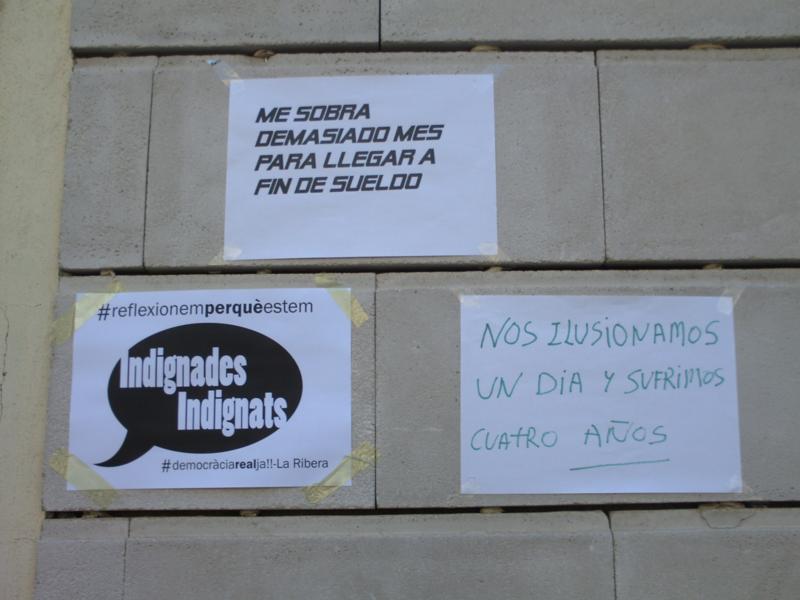 ME SOBRA
DEMASIADO MES
PARA LLEGAR A
FIN DE SUELDO
#reflexionemperquèestem
Indignades
Indignats
#democràciarealja!!-La Ribera
NOS ILUSIONAMOS
UN DIA Y SUFRIMOS
CUATRO AÑOS